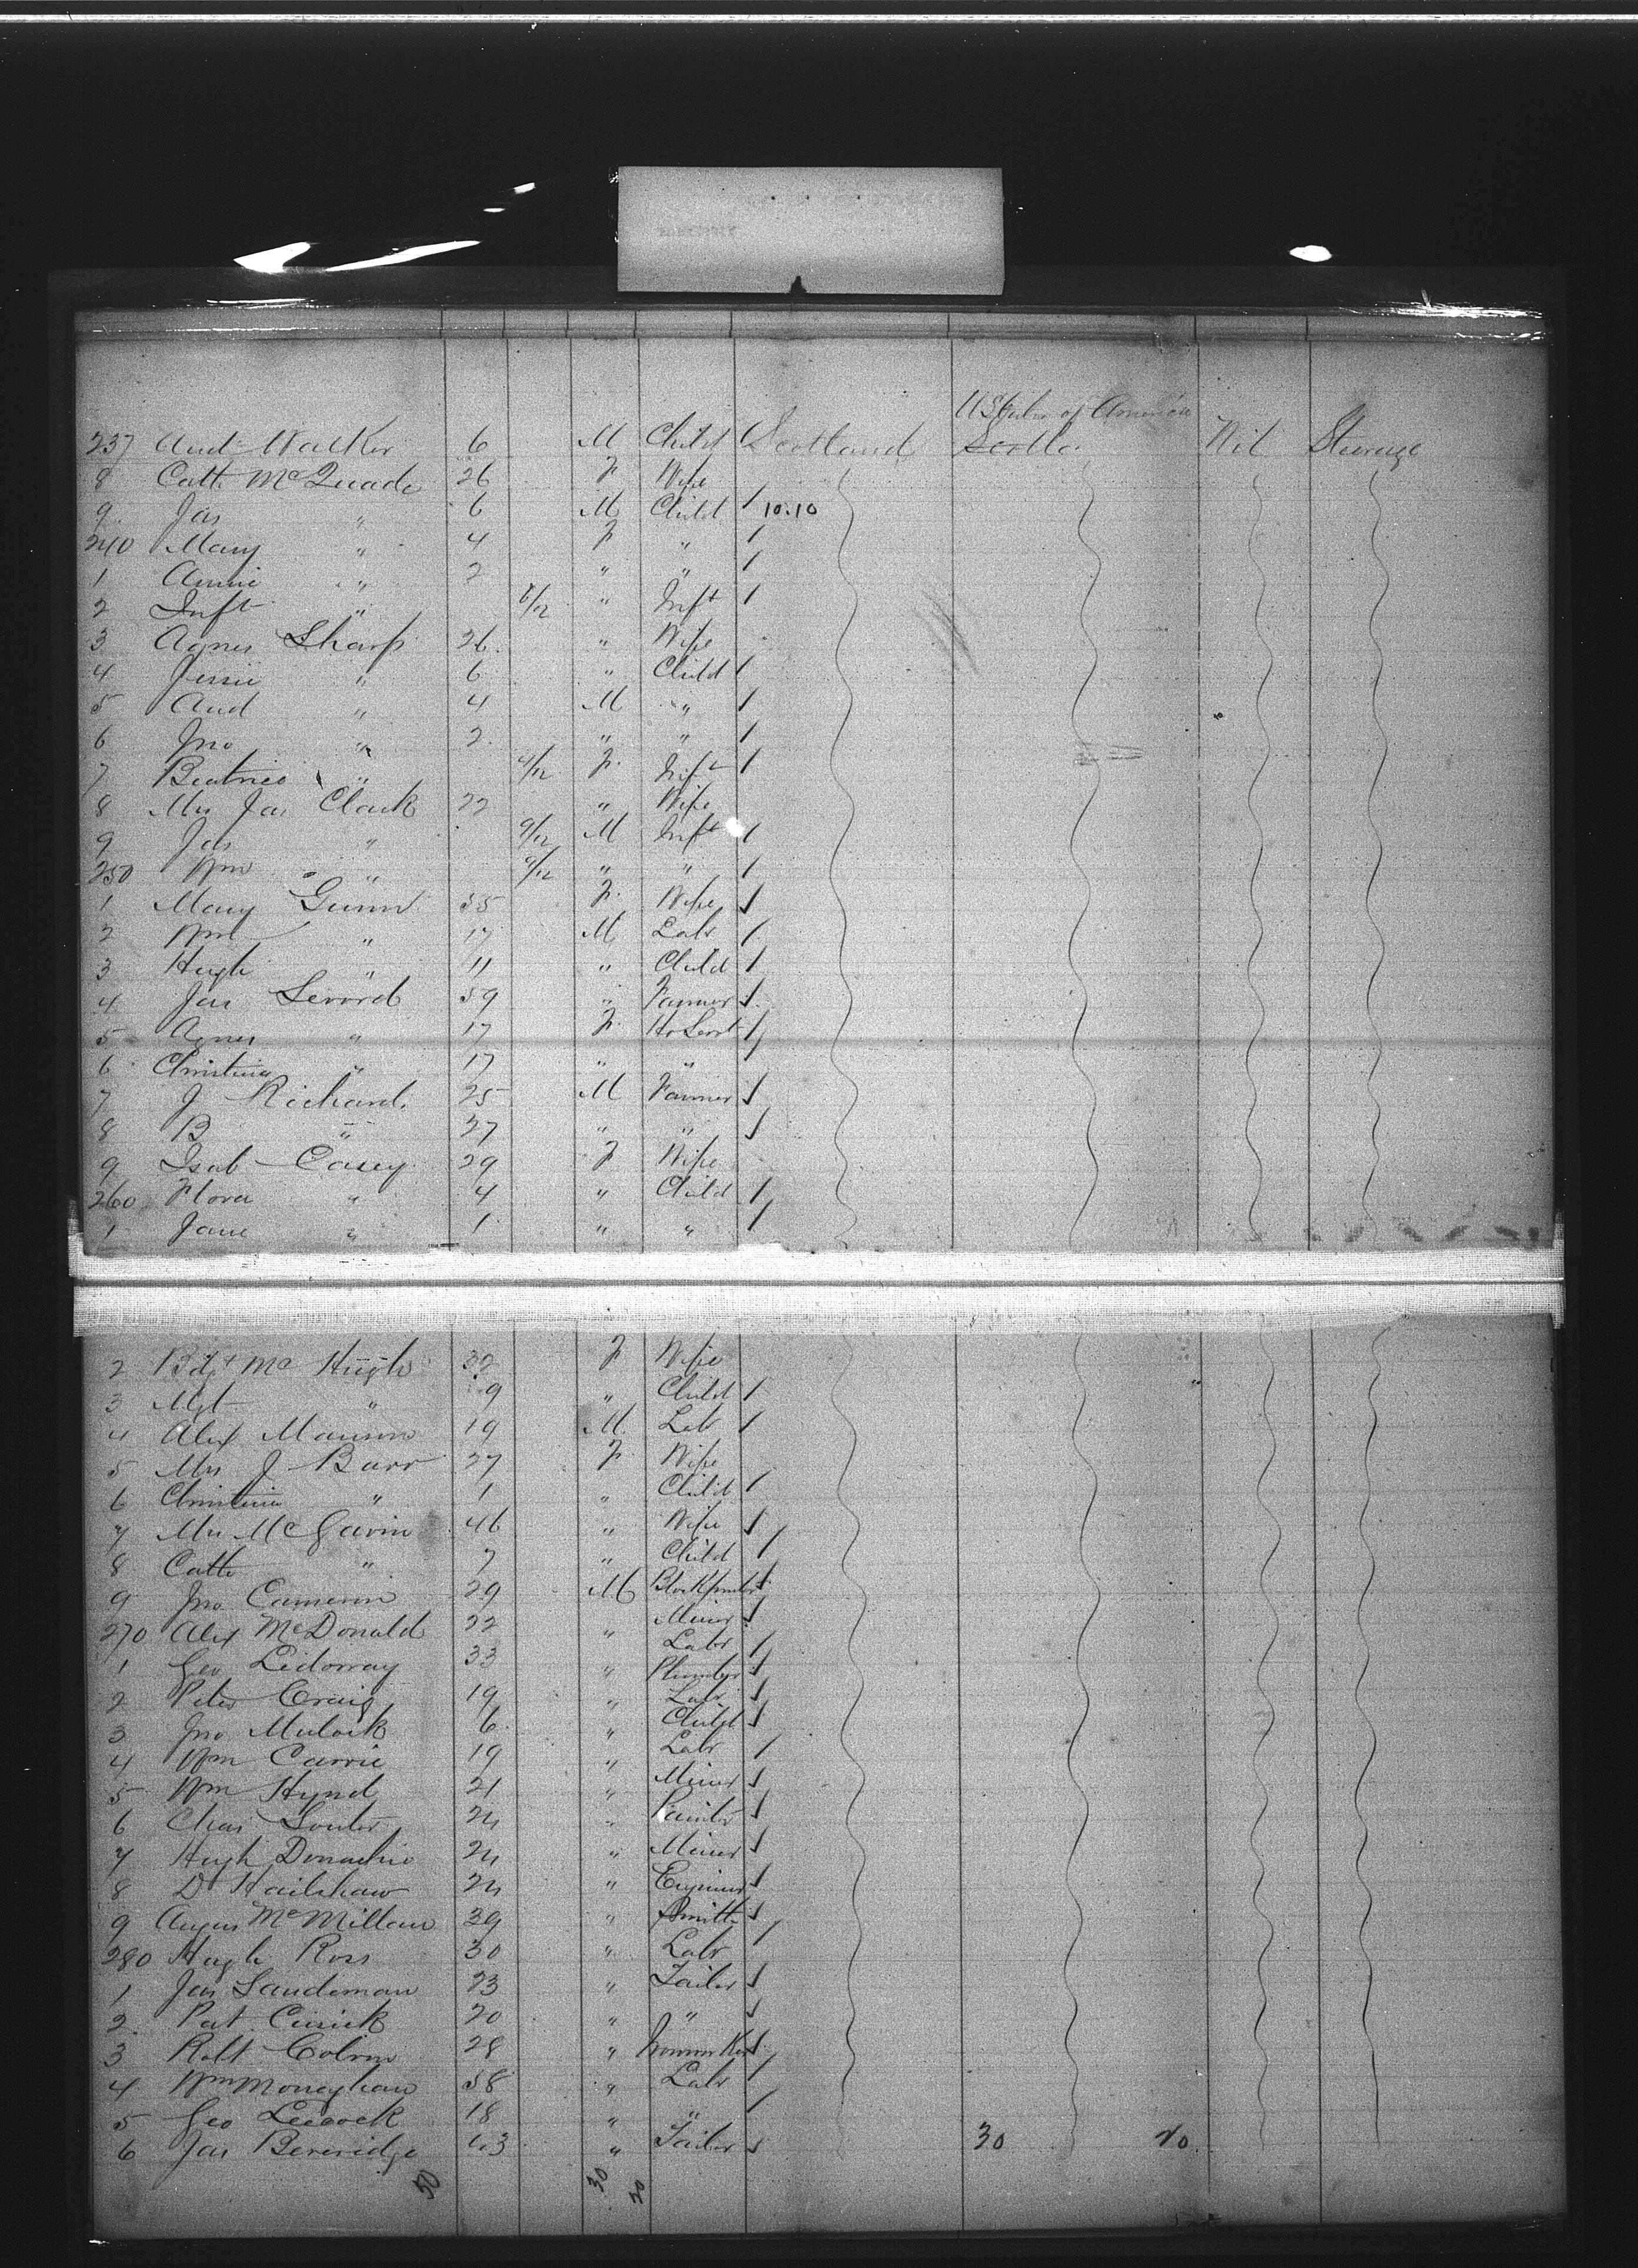 U States of America
237 And Walker 6 M Child Scotland Scotla Nil Steerage
8 Cath McQuade 26 F Wife
9 Jas " 6 M Child 1 10.10
240 Mary " 4 F " 1
1 Annie " 2 " " 1
2 Inft " " Inft 1
3 Agnes Sharp 26 " Wife
4 Jessie " 6 " Child 1
5 And " 4 M " 1
6 Jno " 2 " " 1
7 Beatrice " 4/12 F Inft 1
8 Mrs Jas Clark 22 " Wife
9 Jas " 9/12 M Inft 1
250 Wm " 9/12 " " 1
1 Mary Gunn 35 F Wife 1
2 Wm " 17 M Labr 1
3 Hugh " 11 " Child 1
4 Jas 59 " Farmer 1
5 Agnes " 17 F Ho Servt 1
6 Christina " 17 " " 1
7 J Richard 25 M Farmer 1
8 B " 27 " " 1
9 Isab Casey 29 F Wife
260 Flora " 4 " Child 1
1 Jane " 1 " " 1
2 Bdgt McHugh 32 F Wife
3 Mgt " 9 " Child 1
4 Alex Manson 19 M Lab 1
5 Mrs J Barr 27 F Wife
6 Christina " 1 " Child 1
7 Mrs McGavin 46 " Wife 1
8 Cath " 7 " Child 1
9 Jno Cameron 29 M Blockprinter 1
270 Alex McDonald 22 " Miner 1
1 Geo 33 " Labr 1
2 Peter Craig 19 " Plumber 1
3 Jno Mulock 6 " Labr 1
4 Wm Carrie 19 " Child 1
5 Wm Hynd 21 " Labr 1
6 Chas Souter 24 " Miner 1
7 Hugh Donachie 24 " Painter 1
8 D Hailshaw 24 " Miner 1
9 Angus McMillan 39 " Engineer 1
280 Hugh Ross 30 " Smith 1
1 Jas Sandeman 23 " Labr 1
2 Pat Cusick 20 " Tailor 1
3 Robt Colvin 28 " " 1
4 Wm Moneghan 58 " Labr 1
5 Geo 18 " " 1
6 Jas Beveridge 43 " Tailor 1 30 20
50 30 20